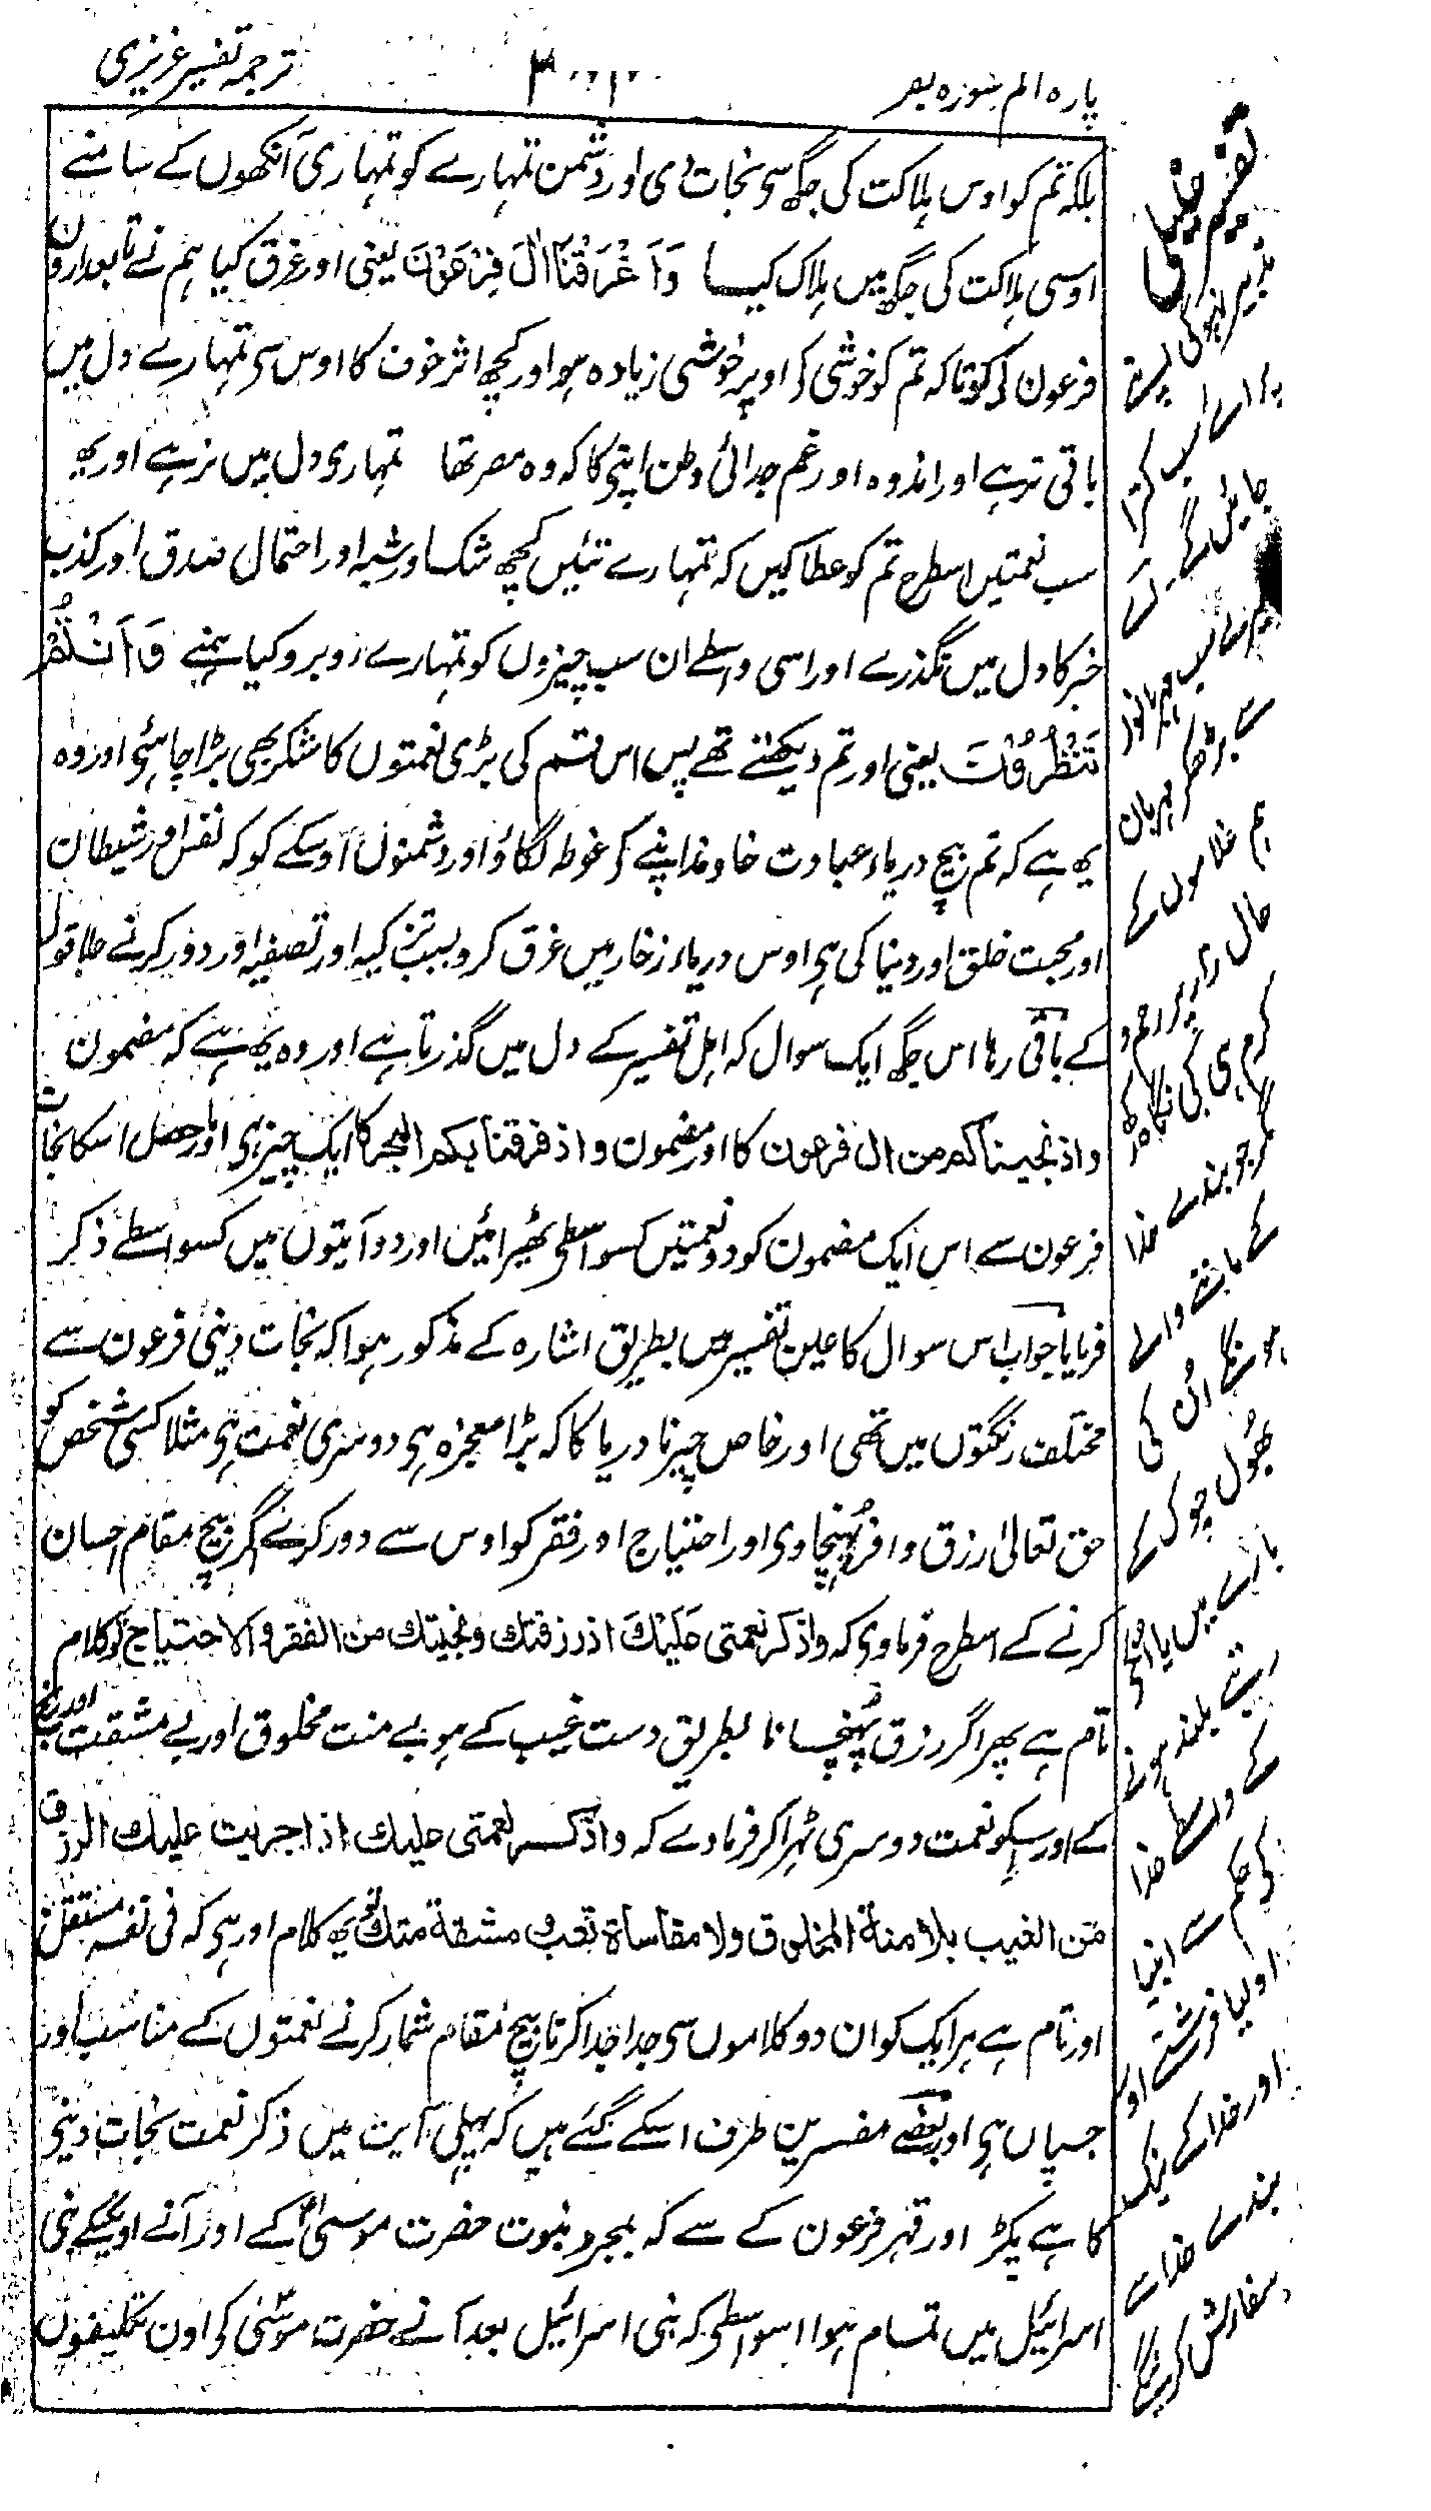 پاره الم سوره بقر
ترجمہ تفسیر عزیزی
بلکہ تم کو اوس ہلاکت کی جگہ سی نجات دی اور دشمن تمہارے کو تمہاری آنکھوں کے سامنے
اوسی ہلاکت کی جگہ میں ہلاک کیا وَاَغْرَقْنَا اٰلَ فِرْعَوْنَ یعنی اور غرق کیا ہم نے تابعدارون
فرعون کی کو تاکہ تم کو خوشی کی اوپر خوشی زیادہ ہو اور کچھ اثر خوف کا اوس سی تمہارے دل میں
باقی نرہے اور اندوہ اور غم جدائی وطن اپنی کا کہ وہ مصر تھا تمہاری دل میں نرہے اور یہ
سب نعمتیں اسطرح تم کو عطا کیں کہ تمہارے تئیں کچھ شک اور شبہ اور احتمال صدق اور کذب
خبر کا دل میں نگذرے اور اسی واسطے ان سب چیزوں کو تمہارے روبرو کیا ہمنے وَاَنْتُمْ
تَنْظُرُوْنَ یعنی اور تم دیکھتے تھے پس اس قسم کی بڑی نعمتوں کا شکر بھی بڑا چاہئی اور وہ
یہ ہے کہ تم بیچ دریاء عبادت خاوند اپنے کی غوطہ لگاؤ اور دشمنوں اوسکے کو کہ نفس اور شیطان
اور محبت خلق اور دنیا کی ہی اوس دریاء زخار میں غرق کرو بسبب تزکیہ اور تصفیہ اور دور کرنے علاقوں
کے باقی رہا اس جگہ ایک سوال کہ اہل تفسیر کے دل میں گذرتا ہے اور وہ یہ ہے کہ مضمون
واذ نجیناکم من ال فرعون کا اور مضمون واذ فرقنا بکم البحر کا ایک چیز ہی اور حاصل اسکا نجات
فرعون سے اس ایک مضمون کو دو نعمتیں کسواسطی ٹھیرائیں اور دو آیتوں میں کسواسطے ذکر
فرمایا جواب اس سوال کا عین تفسیر میں بطریق اشارہ کے مذکور ہوا کہ نجات دینی فرعون سے
مختلف رنگتوں میں تھی اور خاص چیرنا دریا کا کہ بڑا معجزہ ہی دوسری نعمت ہی مثلا کسی شخص کو
حق تعالیٰ رزق وافر پہنچاوی اور احتیاج اور فقر کو اوس سے دور کرے اگر بیچ مقام احسان
کرنے کے اسطرح فرماوی کہ واذکر نعمتی علیک اذ رزقتک ونجیتک من الفقر والاحتیاج تو کلام
تام ہے پھر اگر رزق پہنچانا بطریق دست غیب کے ہو بے منت مخلوق اور بے مشقت اور رنج
کے اور اسکو نعمت دوسری ٹہرا کر فرمادے کہ واذکر نعمتی علیک اذ اجریت علیک الرزق
من الغیب بلا منة المخلوق ولا مقاساة تعب ومشقة منک تو یہ کلام اور ہی کہ فی نفسہ مستقل
اور تام ہے ہر ایک کو ان دو کلاموں سی جدا جدا کرنا بیچ مقام شمار کرنے نعمتوں کے مناسب اور
چسپاں ہی اور بعضے مفسرین طرف اسکے گئے ہیں کہ پہلی آیت میں ذکر نعمت نجات دینی
کا ہے پکڑ اور قہر فرعون کے سے کہ بمجرد نبوت حضرت موسیٰ کے اور آنے اونکے بنی
اسرائیل میں تمام ہوا اسواسطی کہ بنی اسرائیل بعد آنے حضرت موسیٰ کی اون تکلیفوں
جائیں گے
سے بڑھکر مہربان
ہم غلاموں کے
حال
کرم ہی کی نگاہ
گر جو بندے خدا
کے ماننے والے
ہونگے اُن کی
بھول چوک کے
بارے میں
رتبے بلند ہونے
کے واسطے خدا
کے حکم سے انبیا
اولیا فرشتے اور
اور خدا کے نیک
بندے خدا سے
سفارش کرینگے